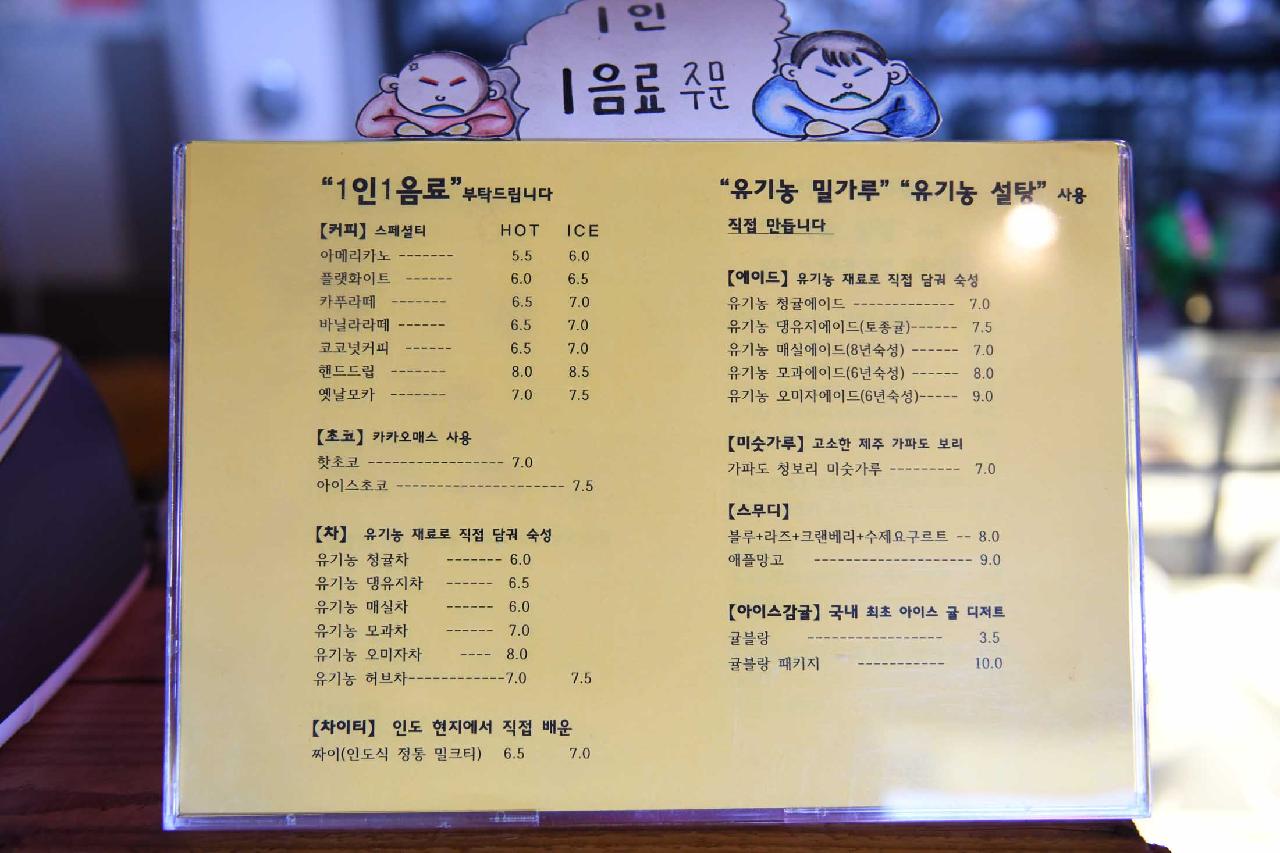 1인
1음료 주문
“1인1음료”부탁드립니다
【커피】 스페셜티 HOT ICE
아메리카노 ------- 5.5 6.0
플랫화이트 ------ 6.0 6.5
카푸라떼 ------- 6.5 7.0
바닐라라떼 ------ 6.5 7.0
코코넛커피 ------ 6.5 7.0
핸드드립 ------- 8.0 8.5
옛날모카 ------- 7.0 7.5
【초코】 카카오매스 사용
핫초코 ----------------- 7.0
아이스초코 --------------------- 7.5
【차】 유기농 재료로 직접 담궈 숙성
유기농 청귤차 ------- 6.0
유기농 댕유지차 ------ 6.5
유기농 매실차 ------ 6.0
유기농 모과차 ------ 7.0
유기농 오미자차 ---- 8.0
유기농 허브차------------7.0 7.5
【차이티】 인도 현지에서 직접 배운
짜이(인도식 정통 밀크티) 6.5 7.0
“유기농 밀가루” “유기농 설탕” 사용
직접 만듭니다
【에이드】 유기농 재료로 직접 담궈 숙성
유기농 청귤에이드 ------------- 7.0
유기농 댕유지에이드(토종귤)------ 7.5
유기농 매실에이드(8년숙성) ------ 7.0
유기농 모과에이드(6년숙성) ----- 8.0
유기농 오미자에이드(6년숙성)----- 9.0
【미숫가루】 고소한 제주 가파도 보리
가파도 청보리 미숫가루 --------- 7.0
【스무디】
블루+라즈+크랜베리+수제요구르트 -- 8.0
애플망고 -------------------- 9.0
【아이스감귤】 국내 최초 아이스 귤 디저트
귤블랑 ----------------- 3.5
귤블랑 패키지 ----------- 10.0